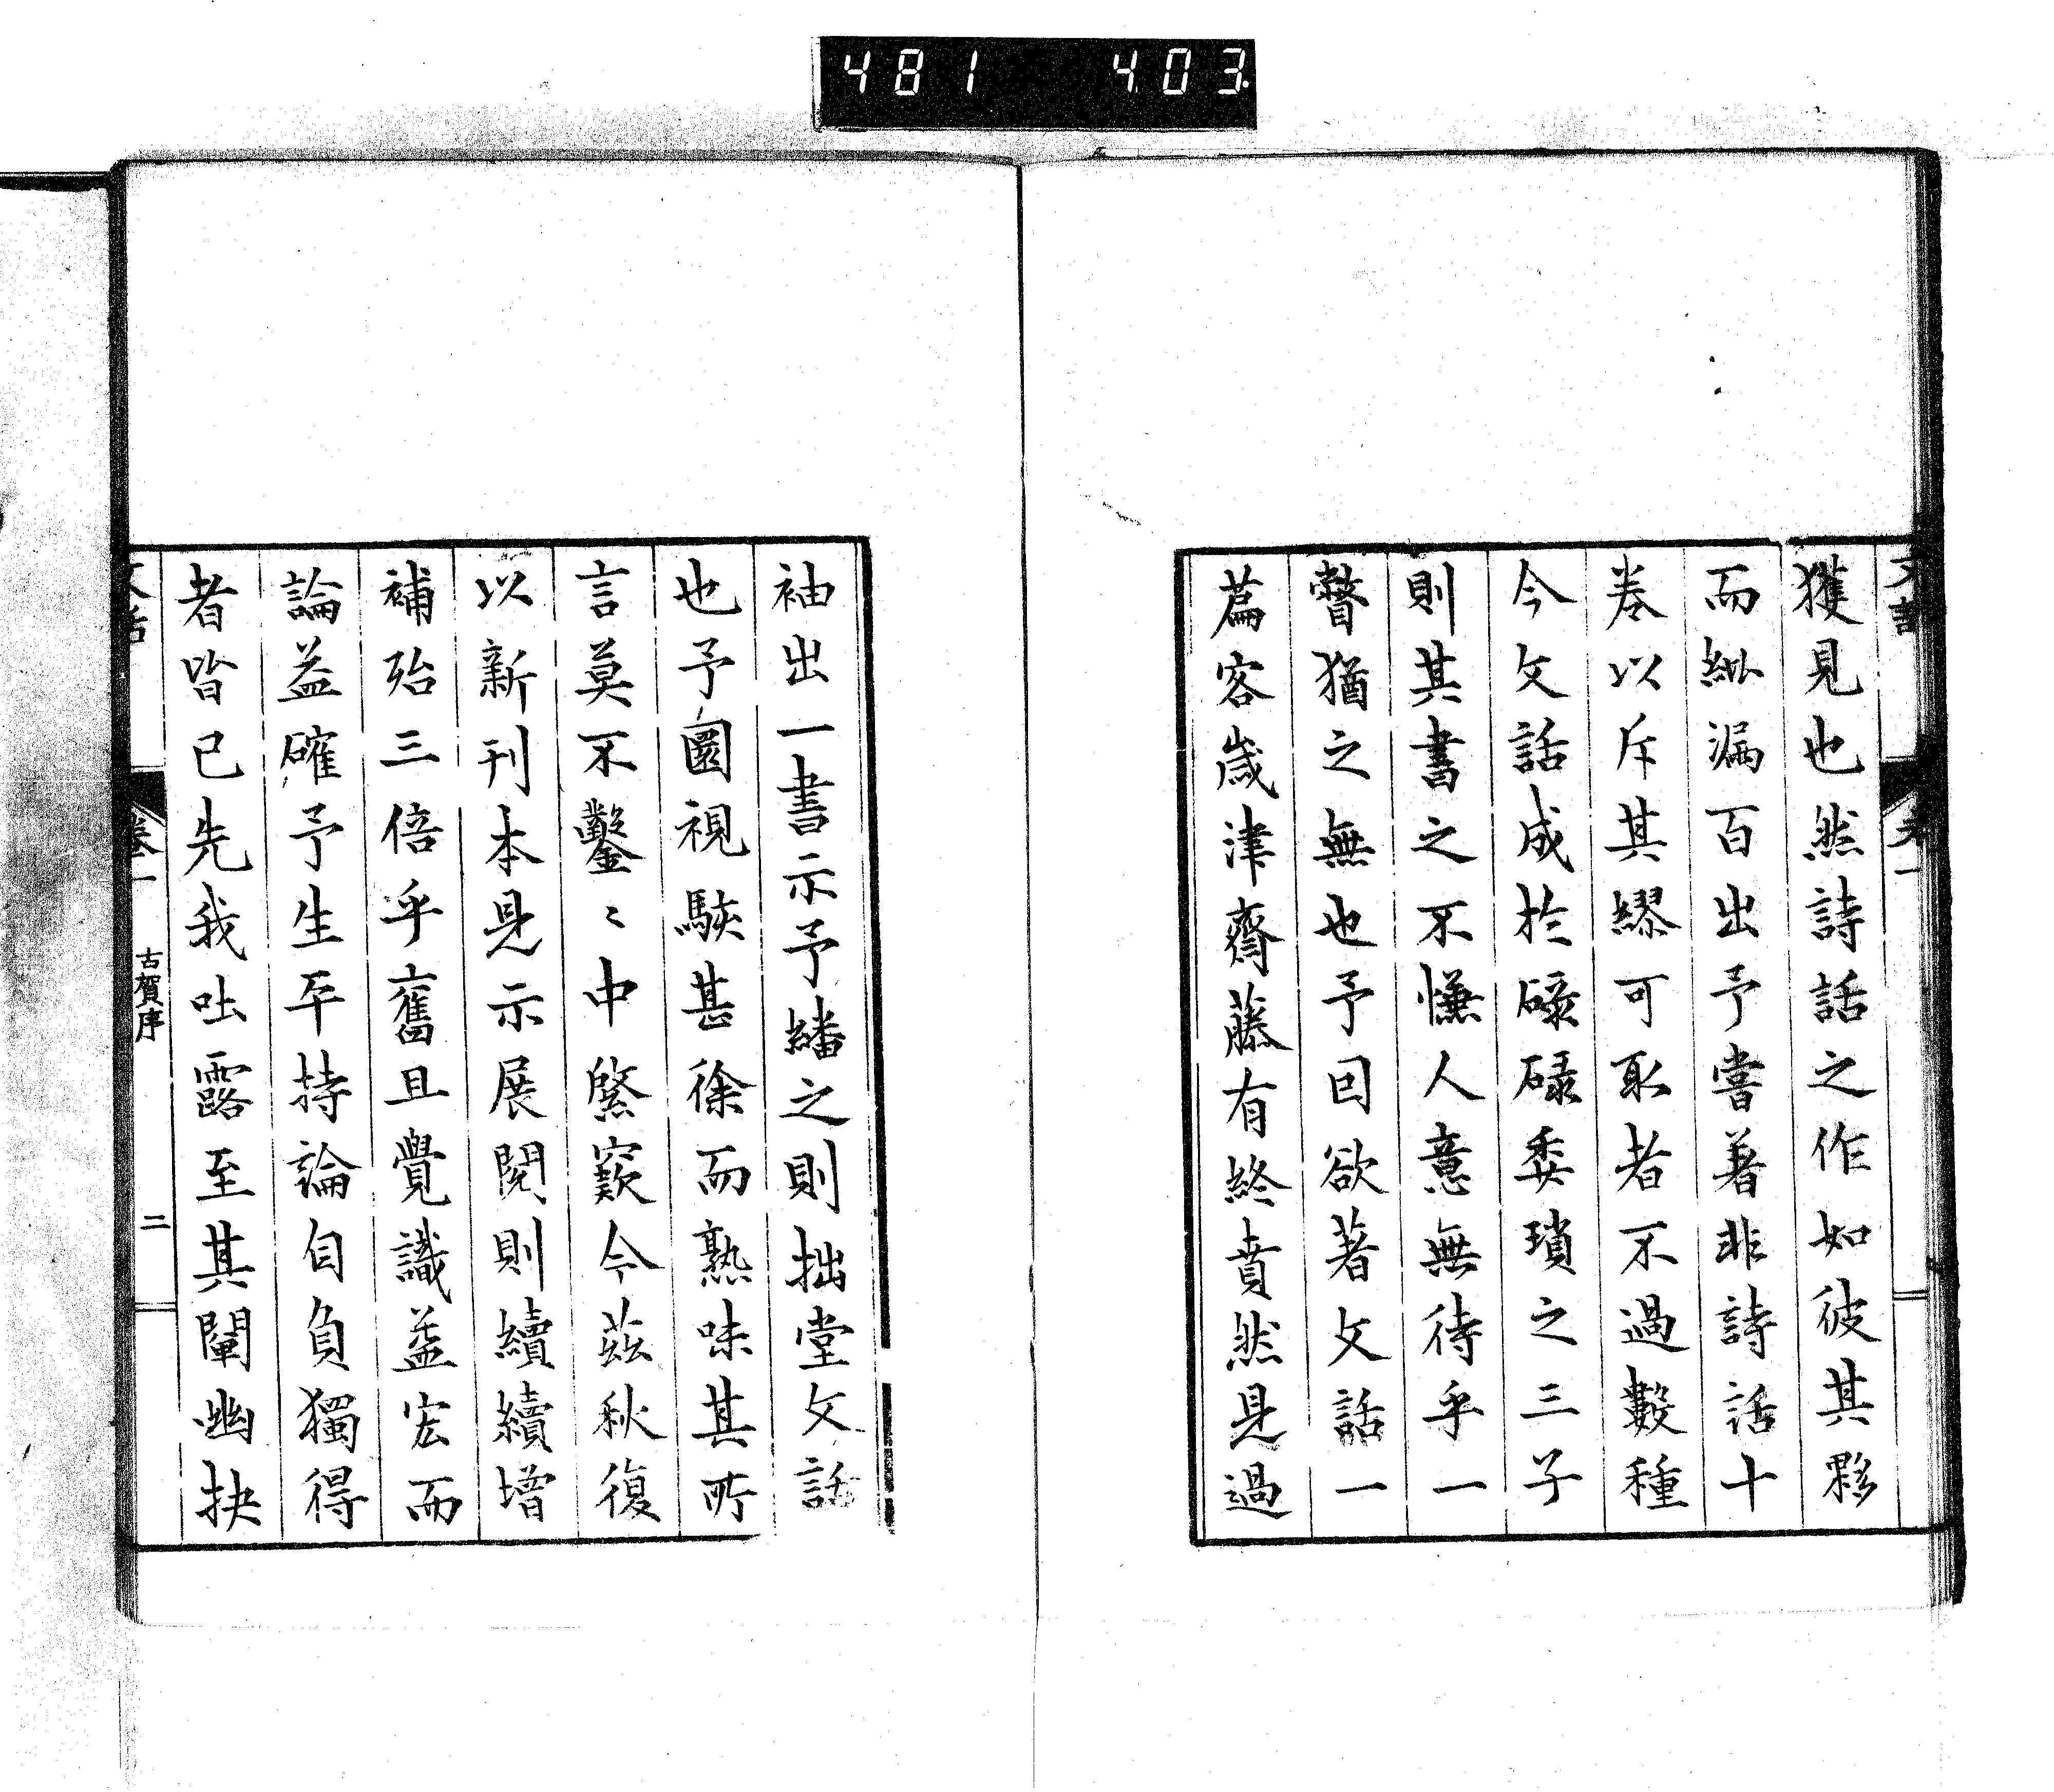 481 403
獲見也然詩話之作如彼其夥
而紕漏百出予嘗著非詩話十
卷以斥其繆可取者不過數種
今文話成於碌碌委瑣之三子
則其書之不慊人意無待乎一
瞥猶之無也予因欲著文話一
篇客歲津齋藤有終賁然見過
袖出一書示予繙之則拙堂文話
也予圜視駴甚徐而熟味其所
言莫不鑿〻中綮窾今茲秋復
以新刊本見示展閱則續續增
補殆三倍乎舊且覺識益宏而
論益確予生平持論自負獨得
者皆已先我吐露至其闡幽抉
文話 卷一 古賀序 二